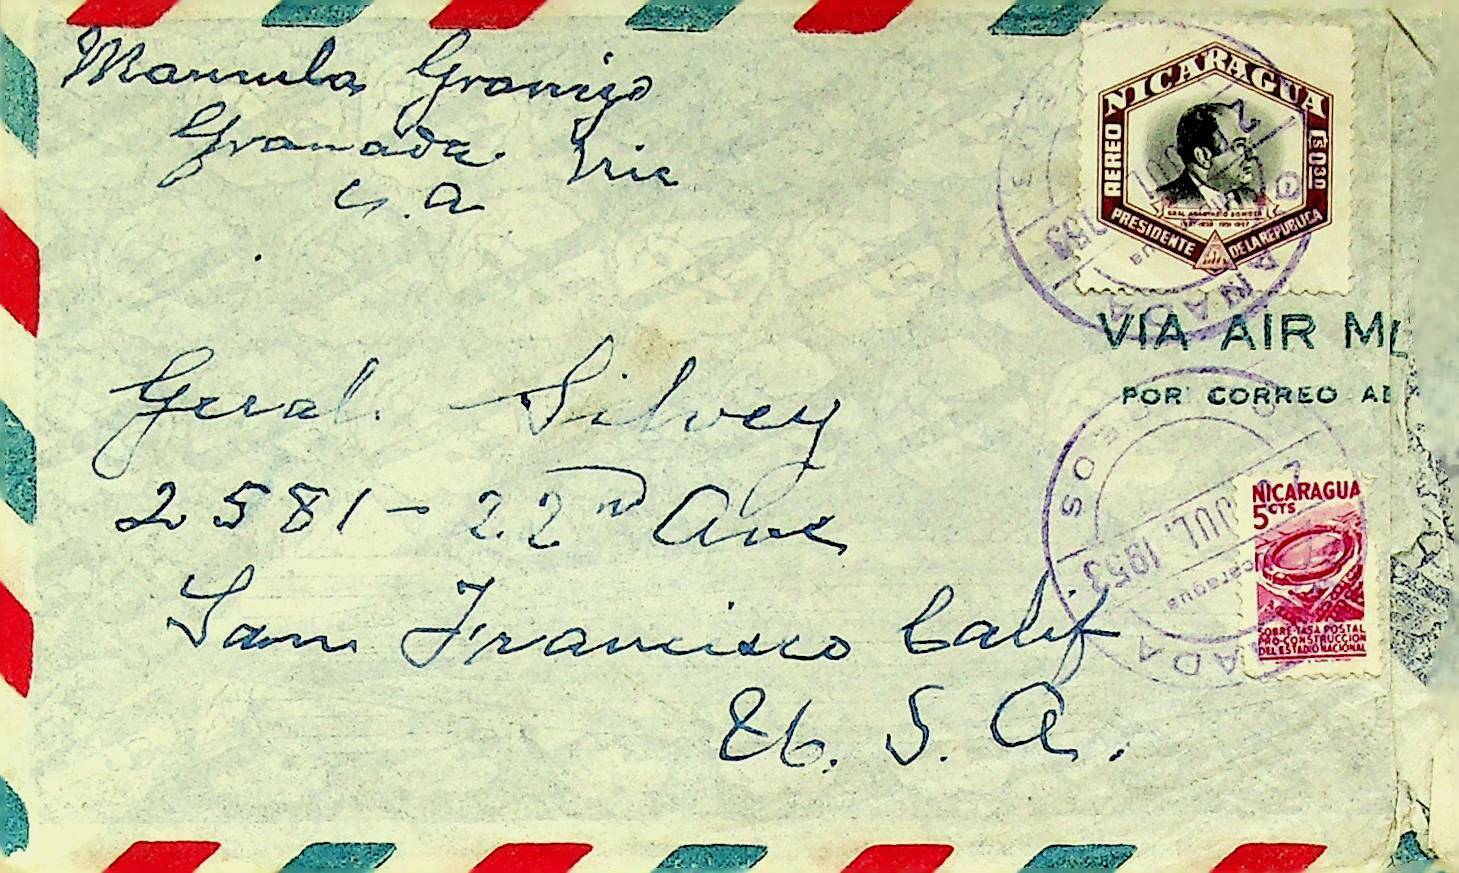 Manuela Granizo
Granada. Nic
C. A
NICARAGUA
AEREO
C$ 0.30
GRAL ANASTASIO SOMOZA
PRESIDENTE DE LA REPUBLICA
VIA AIR M
POR CORREO AE
Geral. Silvey
2581 - 22nd Ave
San Francisco Calif
U. S. A.
NICARAGUA
5 CTS
SOBRE-TASA POSTAL
PRO-CONSTRUCCION
DEL ESTADIO NACIONAL
JUL. 1953
Nicaragua